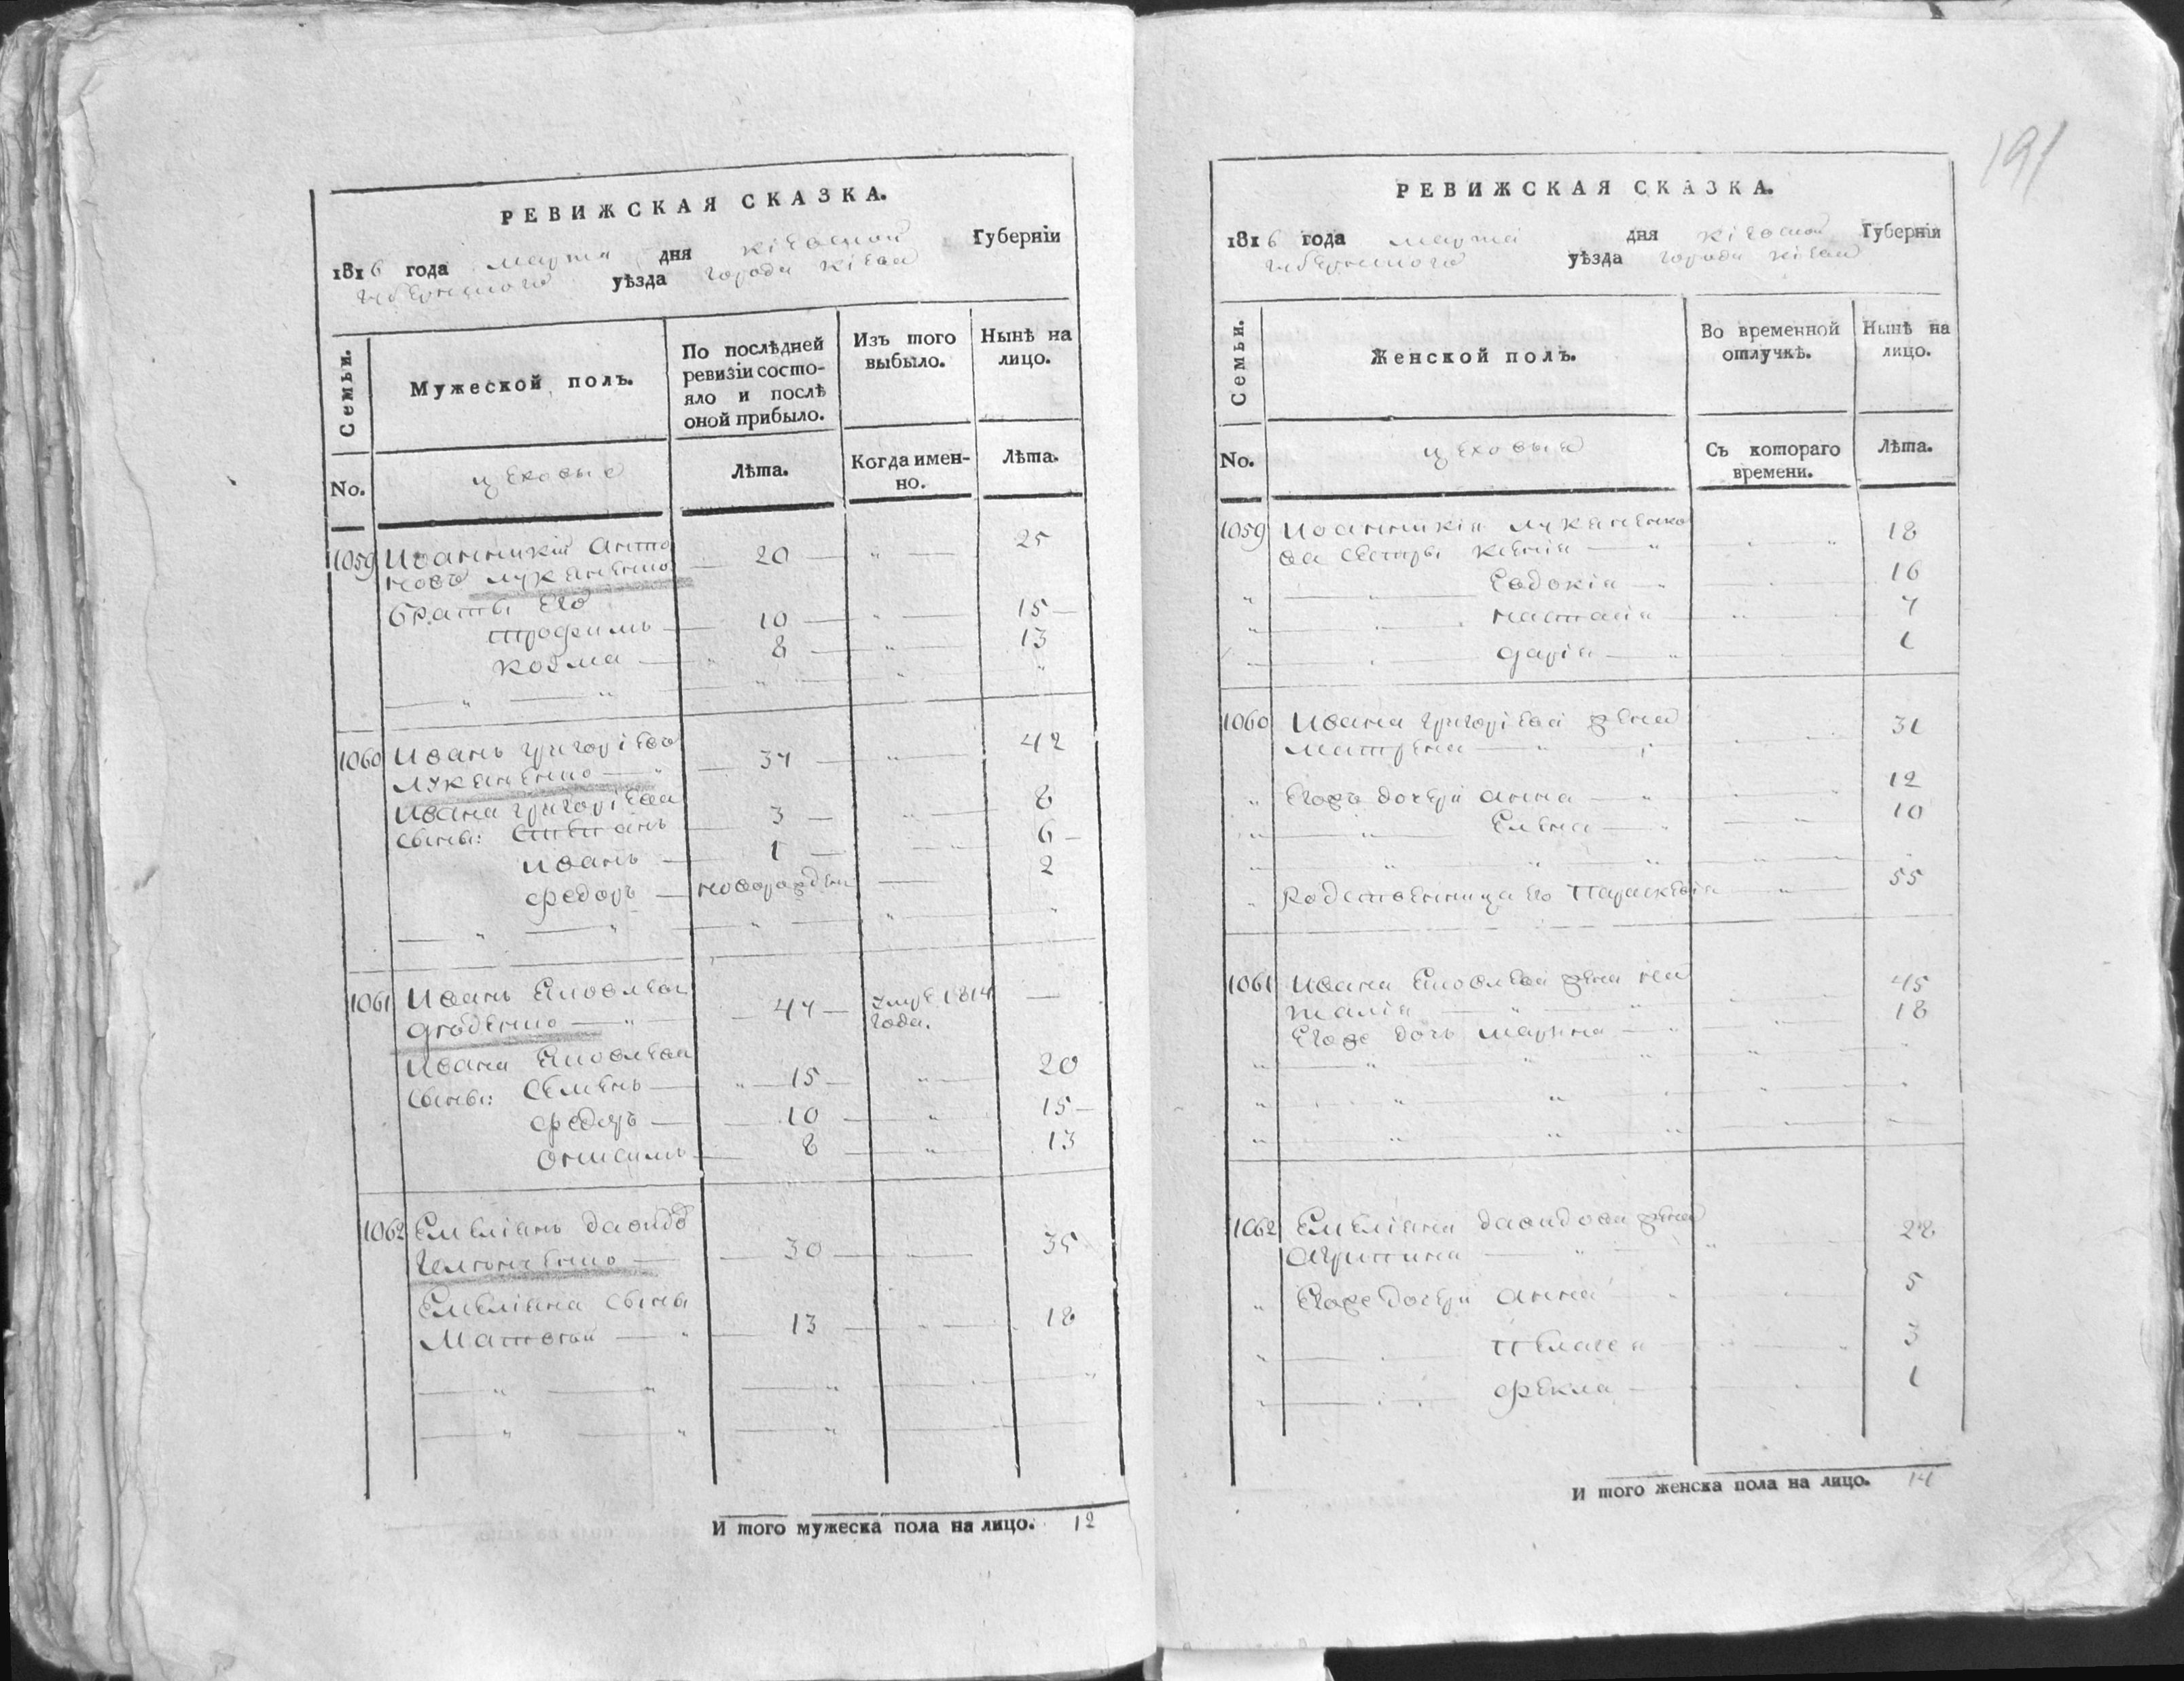 РЕВИЖСКАЯ СКАЗКА.
1816 года марта дня Кіевской Губерніи
уѣзда города Кіева
Семьи.
Мужеской полъ.
По послѣдней ревизіи состояло и послѣ оной прибыло.
Изъ того выбыло.
Нынѣ на лицо.
No.
цеховые
Лѣта.
Когда именно.
Лѣта.
1059 Иоанникій Анто 20 25
новъ Лукяненко
братьи его
Трофимъ 10 15
Козма 8 13
1060 Иванъ Григоріевъ 37 42
Лукяненко
Ивана Григоріева
сыны: Степанъ 3 8
Иванъ 1 6
Федоръ новорожден 2
1061 Иванъ Яковлевъ 47 умре 1814 года.
Ивана Яковлева
сыны: Семенъ 15 20
Федоръ 10 15
Онисимъ 8 13
1062 Емеліянъ Давидов 30 35
Емеліяна сыны
Матвей 13 18
И того мужеска пола на лицо. 12
191
РЕВИЖСКАЯ СКАЗКА.
1816 года марта дня Кіевской Губерніи
уѣзда города Кіева
Семьи.
Женской полъ.
Во временной отлучкѣ.
Нынѣ на лицо.
No.
цеховые
Съ котораго времени.
Лѣта.
1059 Иоанникія Лукяненко
ва сестры Ксенія 18
Евдокія 16
Наталія 7
Дарія 1
1060 Ивана Григоріева жена 31
Матрена
Егожъ дочери Анна 12
Елена 10
Родственница его Параскевія 55
1061 Ивана Яковлева жена На 45
талія
Егоже дочь Марина 18
1062 Емеліяна Давидова жена 28
Агрипина
Егоже дочери Анна 5
Пелагея 3
Фекла 1
И того женска пола на лицо. 14